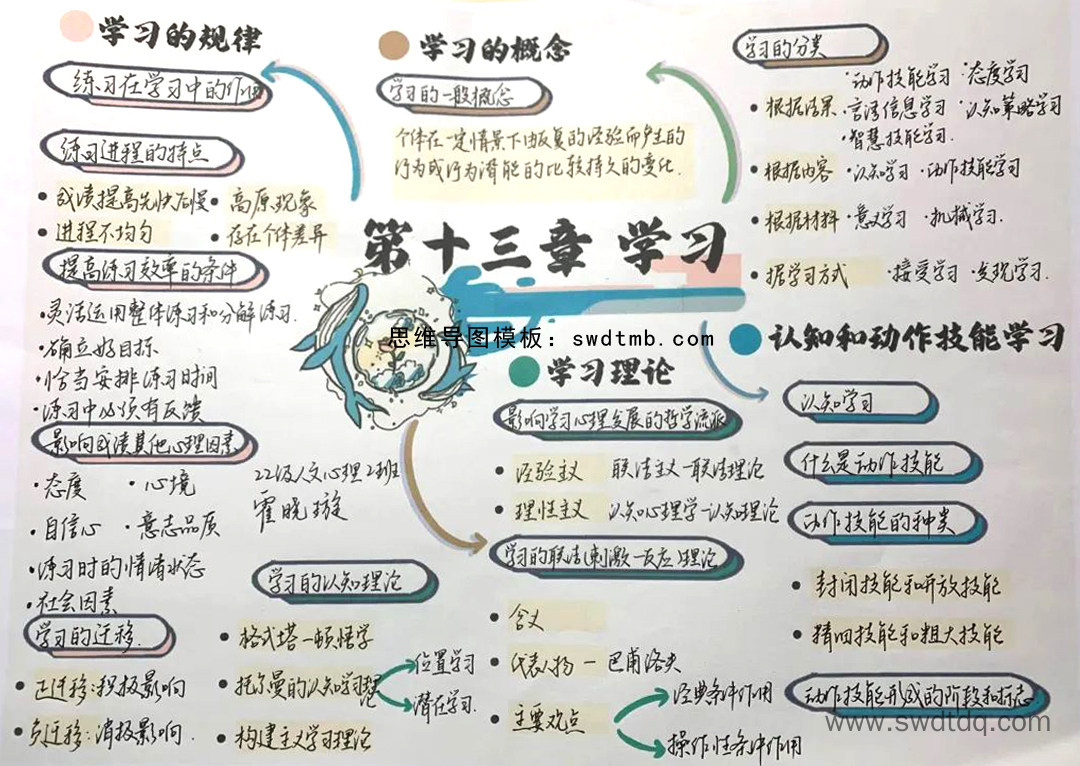 学习的规律
练习在学习中的作用
练习进程的特点
成绩提高先快后慢
高原现象
进程不均匀
存在个体差异
提高练习效率的条件
·灵活运用整体练习和分解练习.
·确立好目标
·恰当安排练习时间
·练习中必须有反馈
影响成绩其他心理因素
·态度 ·心境
·自信心 ·意志品质
·练习时的情绪状态
·社会因素
学习的迁移.
正迁移:积极影响
负迁移:消极影响.
学习的概念
学习的一般概念
个体在一定情景下由反复的经验而产生的
行为或行为潜能的比较持久的变化.
第十三章 学习
思维导图模板：swdtmb.com
22级人文心理2班
霍晓璇
学习的分类
根据结果
·动作技能学习 ·态度学习
·言语信息学习 ·认知策略学习
·智慧技能学习.
根据内容 ·认知学习 ·动作技能学习
根据材料 ·意义学习 ·机械学习.
据学习方式 ·接受学习 ·发现学习.
学习理论
影响学习心理发展的哲学流派
经验主义 联结主义-联结理论
理性主义 认知心理学-认知理论
学习的联结(刺激-反应)理论
含义
代表人物 - 巴甫洛夫
主要观点
经典条件作用
操作性条件作用
学习的认知理论
格式塔-顿悟学
托尔曼的认知学习理论
位置学习
潜在学习.
构建主义学习理论
认知和动作技能学习
认知学习
什么是动作技能
动作技能的种类
封闭技能和开放技能
精细技能和粗大技能
动作技能形成的阶段和标志.
www.swdtdq.com